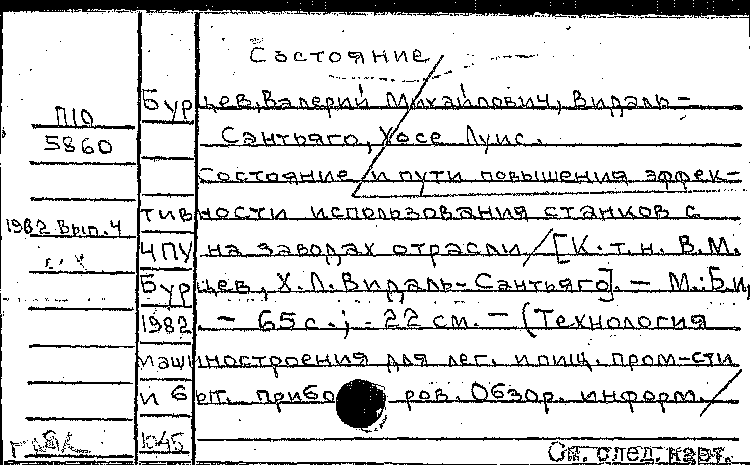 Состояние
П10
5860
1982 Вып. 4
Бурцев, Валерий Михайлович, Видаль-
Сантьяго, Хосе Луис.
Состояние и пути повышения эффек-
тивности использования станков с
ЧПУ на заводах отрасли / [К.т.н. В.М.
Бурцев, Х.Л. Видаль-Сантьяго]. - М.: Б.и,
1982. - 65 с.; - 22 см. - (Технология
машиностроения для лег. и пищ. пром-сти
и быт. приборов. Обзор. информ. /
1045
См. след. карт.